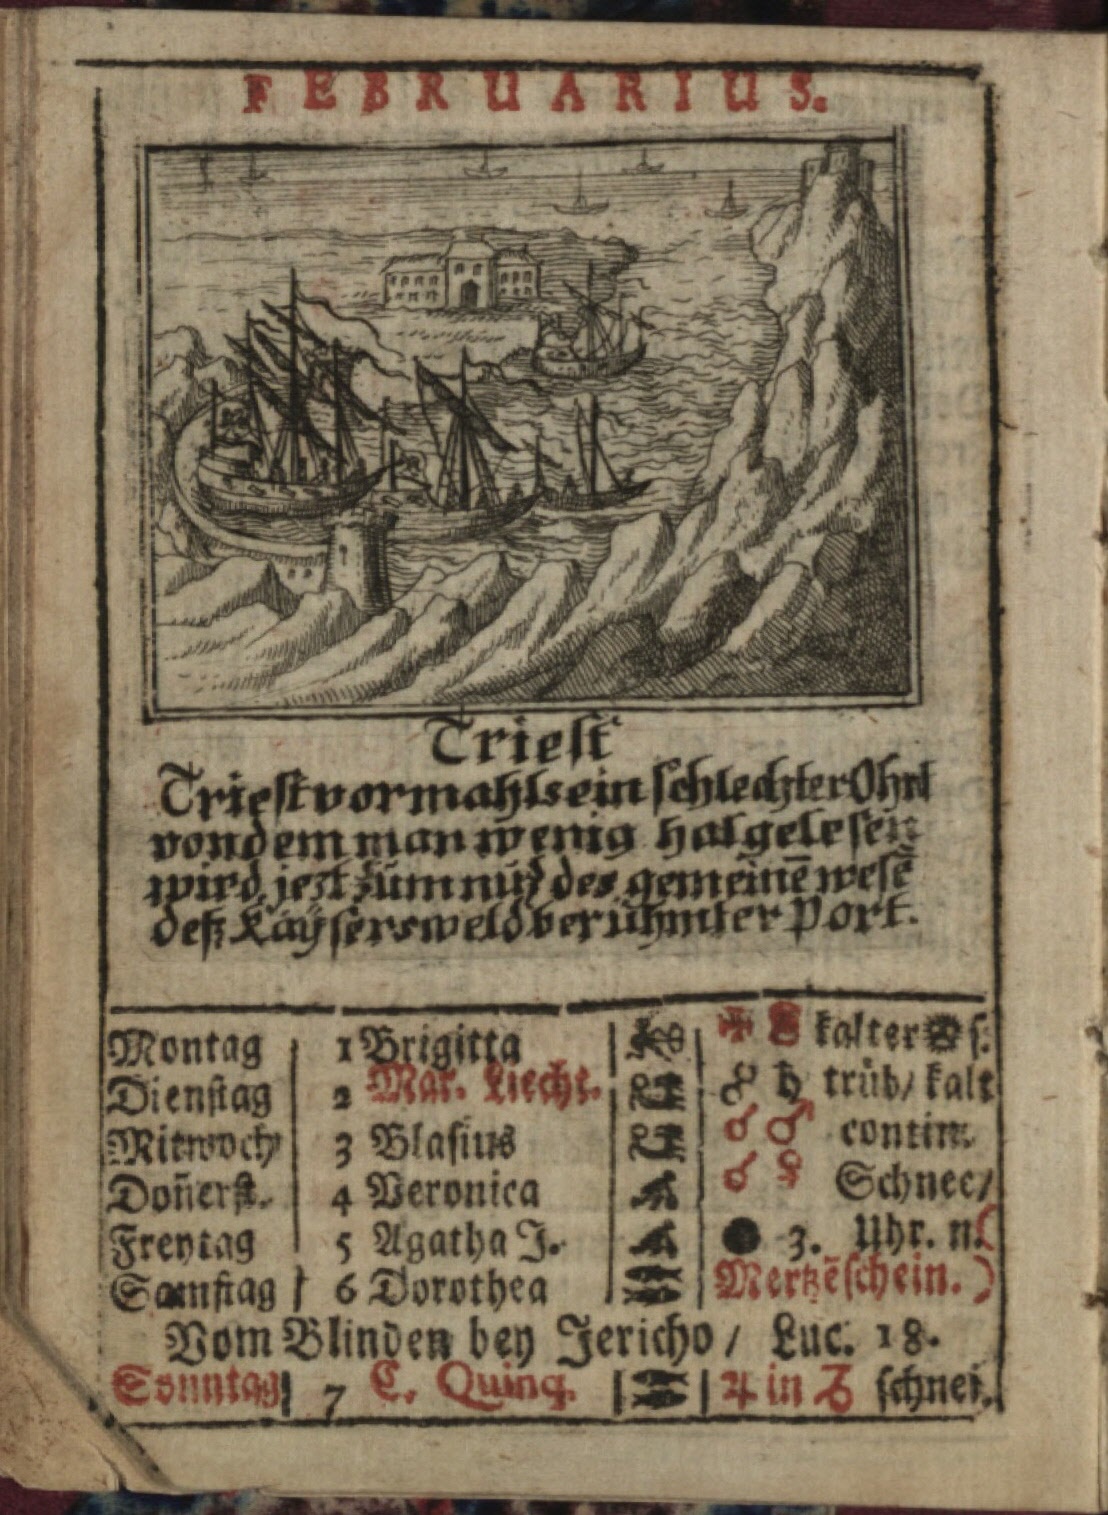 FEBRUARIUS.
Triest
Triest vormahls ein schlechter Ohrt
von dem man wenig hat gelesen
wird jezt zum nuz des gemeinē wesē
deß Kaÿsers weld berühmter Port.
Montag 1 Brigitta kalter s:
Dienstag 2 Mar. Liecht. ☍ ♄ trüb/ kalt
Mitwoch 3 Blasius ☌ ♂ contin.
Don̄erst. 4 Veronica ☌ ♀ Schnee/
Freytag 5 Agatha J. ● 3. Uhr. n. (
Samstag 6 Dorothea Mertzēschein. )
Vom Blinden bey Jericho / Luc. 18.
Sonntag 7 C. Quinq. ♃ in ♑ schnei.